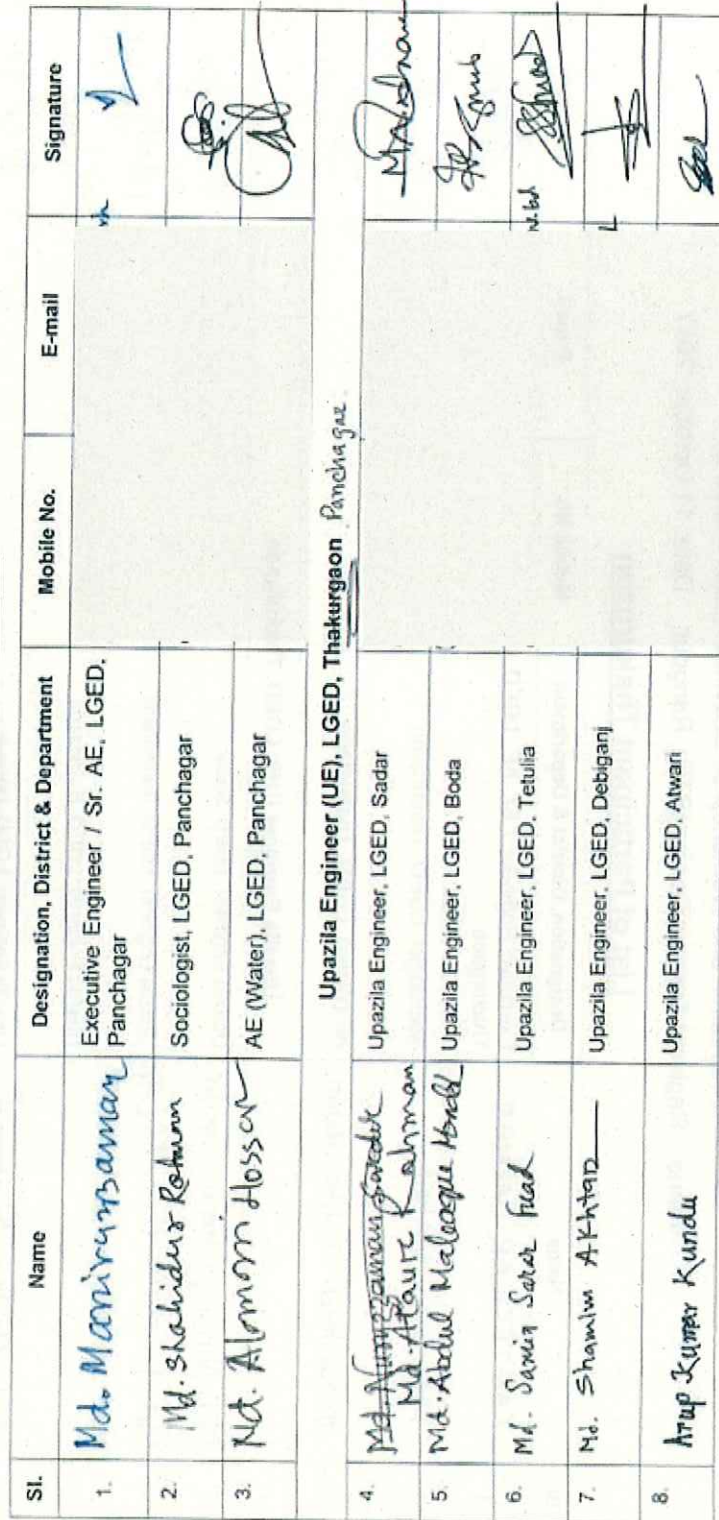 Sl. Name Designation, District & Department Mobile No. E-mail Signature
1. Md. Moniruzzaman Executive Engineer / Sr. AE, LGED, Panchagar
2. Md. Shahidur Rahman Sociologist, LGED, Panchagar
3. Md. Almom Hossen AE (Water), LGED, Panchagar
Upazila Engineer (UE), LGED, Thakurgaon Panchagar
4. Md. Ataur Rahman Upazila Engineer, LGED, Sadar
5. Md. Abdul Upazila Engineer, LGED, Boda
6. Md. Samin Sarar Fuad Upazila Engineer, LGED, Tetulia
7. Md. Shamim Akhtar Upazila Engineer, LGED, Debiganj
8. Arup Kumar Kundu Upazila Engineer, LGED, Atwari